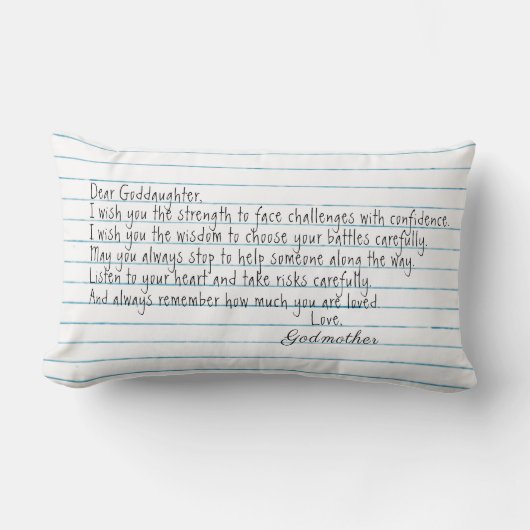 Dear Goddaughter,
I wish you the strength to face challenges with confidence.
I wish you the wisdom to choose your battles carefully.
May you always stop to help someone along the way.
Listen to your heart and take risks carefully.
And always remember how much you are loved.
Love,
Godmother